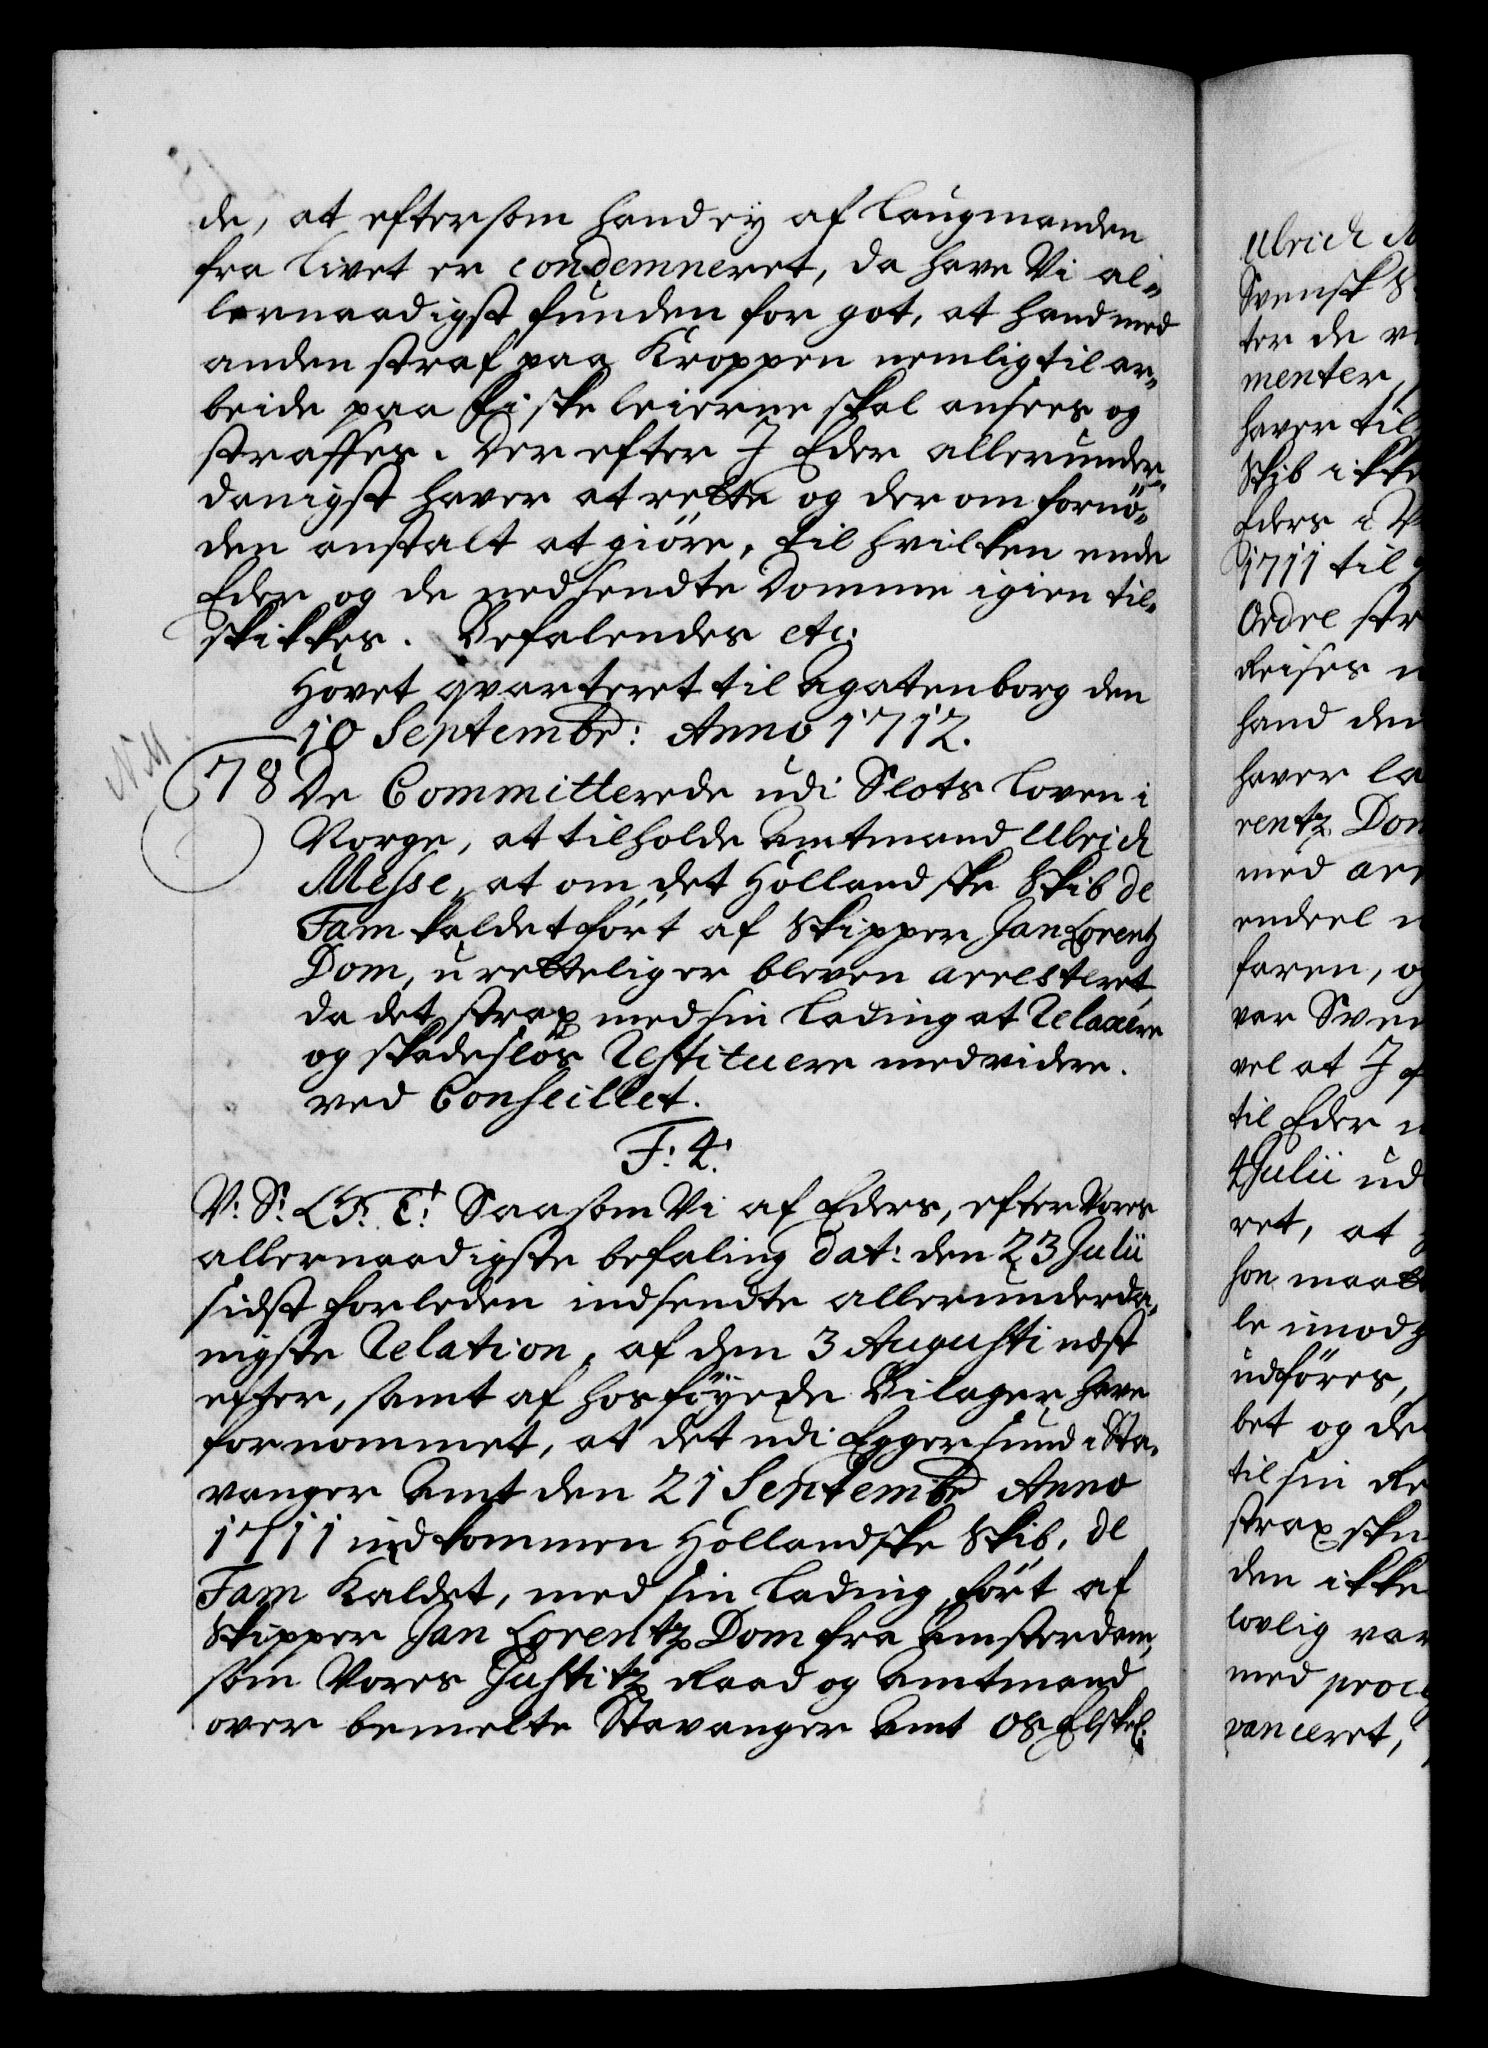 de, at eftersom hand ey af Laugmanden
fra livet er condemneret, da have Vi al-
lernaadigst funden for got, at hand med
anden straf paa Kroppen nemlig til ar-
beide paa Fiskeleierne skal ansees og
straffes. Der efter I Eder allerunder-
danigst haver at rette og derom fornö-
den anstalt at giöre, til hvilken ende
Eder og de nedsendte Domme igien til-
skikkes. Befalendes etc:
Hovet qvarteret til Agatenborg den
10 Septembr: Anno 1712.
78 De Committerede udi Slots Loven i
Norge, at tilholde Amtmand Ulrich
Messe, at om det Hollandske Skib de
Fam kaldet fört af Skipper Jan Lorentz
Dom, uretteligen bleven arresteret,
da det strax med sin Lading at Relaxere
og skadeslös Restituere med videre.
ved Conseillet.
F: 4:
V: S: L F: T: Saasom Vi af Eders, efter Vores
allernaadigste befaling dat: den 23 Julii
sidst forleden indsendte allerunderda-
nigste Relation, af den 3 Augusti næst
efter, samt af hosföyede Bilager have
fornommet, at det udi Eggersund i Sta-
vanger Amt den 21 Septembr Anno
1711 indkommen Hollandske Skib, de
Fam Kaldet, med sin Lading, fört af
Skipper Jan Lorentz Dom fra Amsterdam,
som Vores Justitz Raad og Amtmand
over bemelte Stavanger Amt Os Elskel:
Ulrich
Svensk
ter de
menter,
haver til
Skib ikke
Eders i
1711 til
Ordre
Reises
hand den
haver
rentz Dom
med
endeel
faren,
var
vel at I
til Eder
4 Julii ud
ret, at
hon
le imod
udföres,
bet og
til sin
strax
den ikke
lovlig var
med